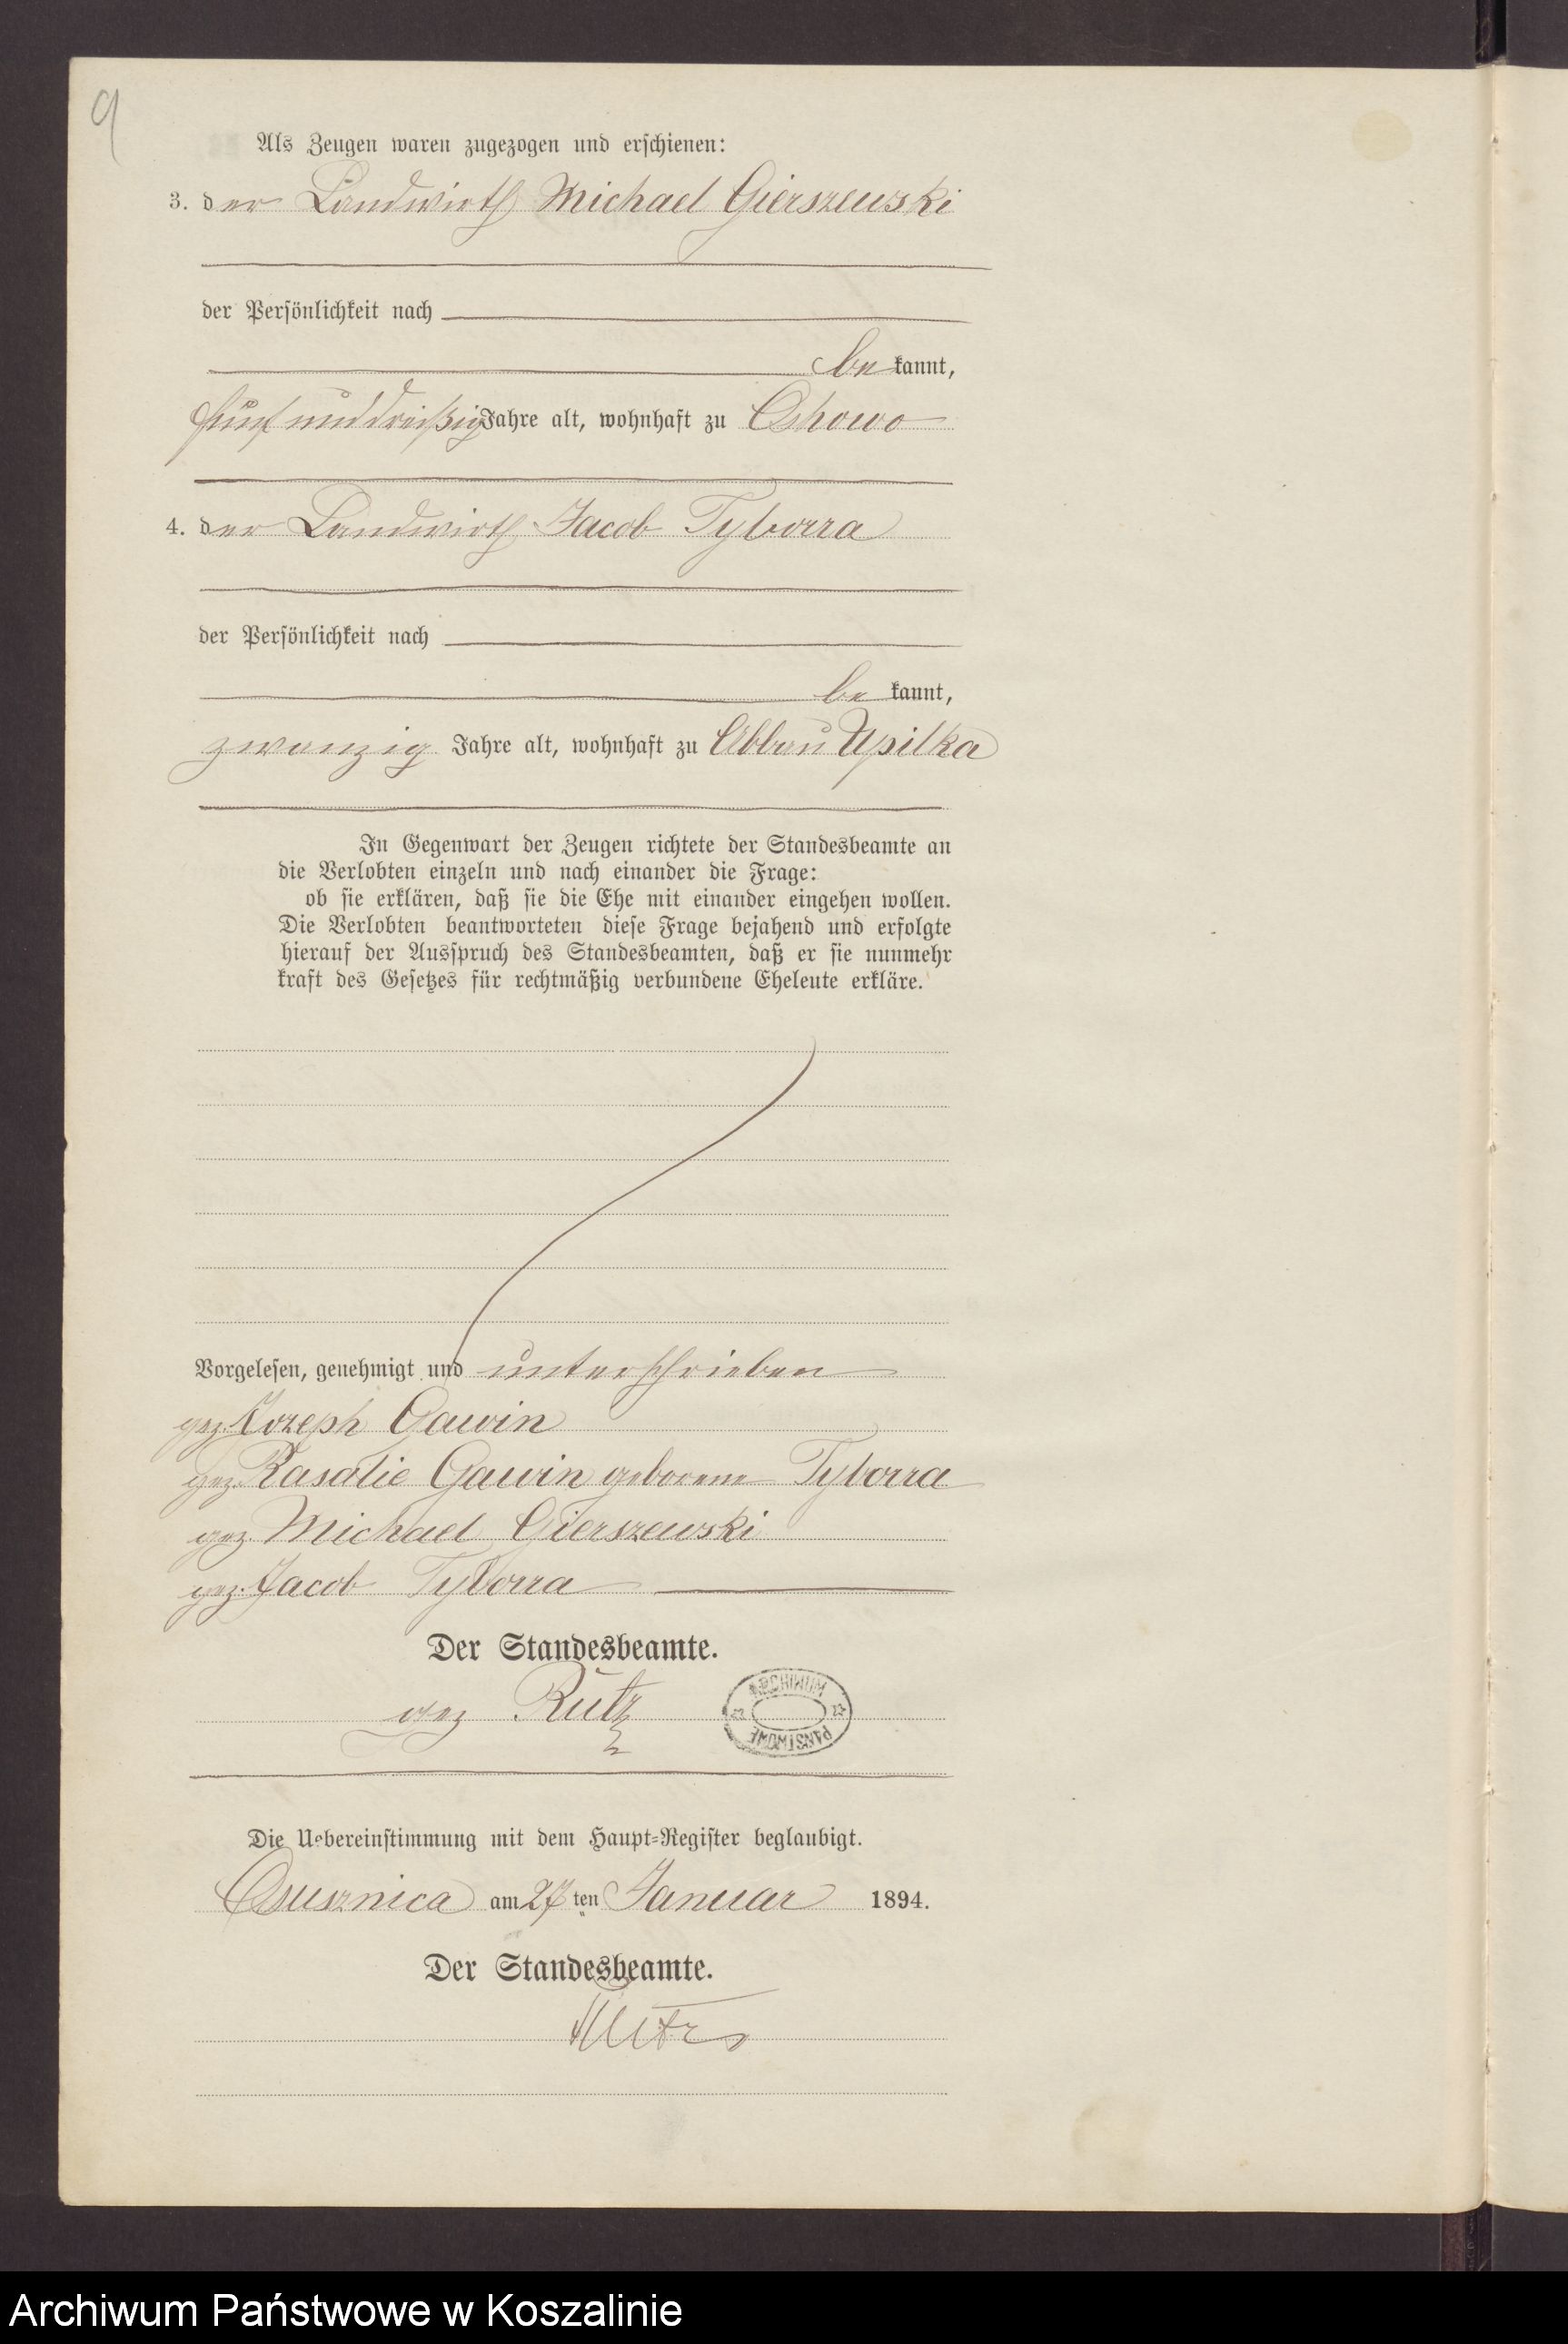 9
Als Zeugen waren zugezogen und erschienen:
3. der Landwirth Michael Gierszewski
der Persönlichkeit nach
bekannt,
fünf und dreißig Jahre alt, wohnhaft zu
4. der Landwirth Jacob Tyborra
der Persönlichkeit nach
bekannt,
zwanzig Jahre alt, wohnhaft zu Abbau Upilka
In Gegenwart der Zeugen richtete der Standesbeamte an
die Verlobten einzeln und nach einander die Frage:
ob sie erklären, daß sie die Ehe mit einander eingehen wollen.
Die Verlobten beantworteten diese Frage bejahend und erfolgte
hierauf der Ausspruch des Standesbeamten, daß er sie nunmehr
kraft des Gesetzes für rechtmäßig verbundene Eheleute erkläre.
Vorgelesen, genehmigt und unterschrieben
gez. Jozeph Gawin
gez. Rasalie Gawin geborene Tyborra
gez. Michael Gierszewski
gez. Jacob Tyborra
Der Standesbeamte.
gez Rutz
ARCHIWUM PAŃSTWOWE
Die Uebereinstimmung mit dem Haupt=Register beglaubigt.
Osusznica am 27ten Januar 1894.
Der Standesbeamte.
Archiwum Państwowe w Koszalinie